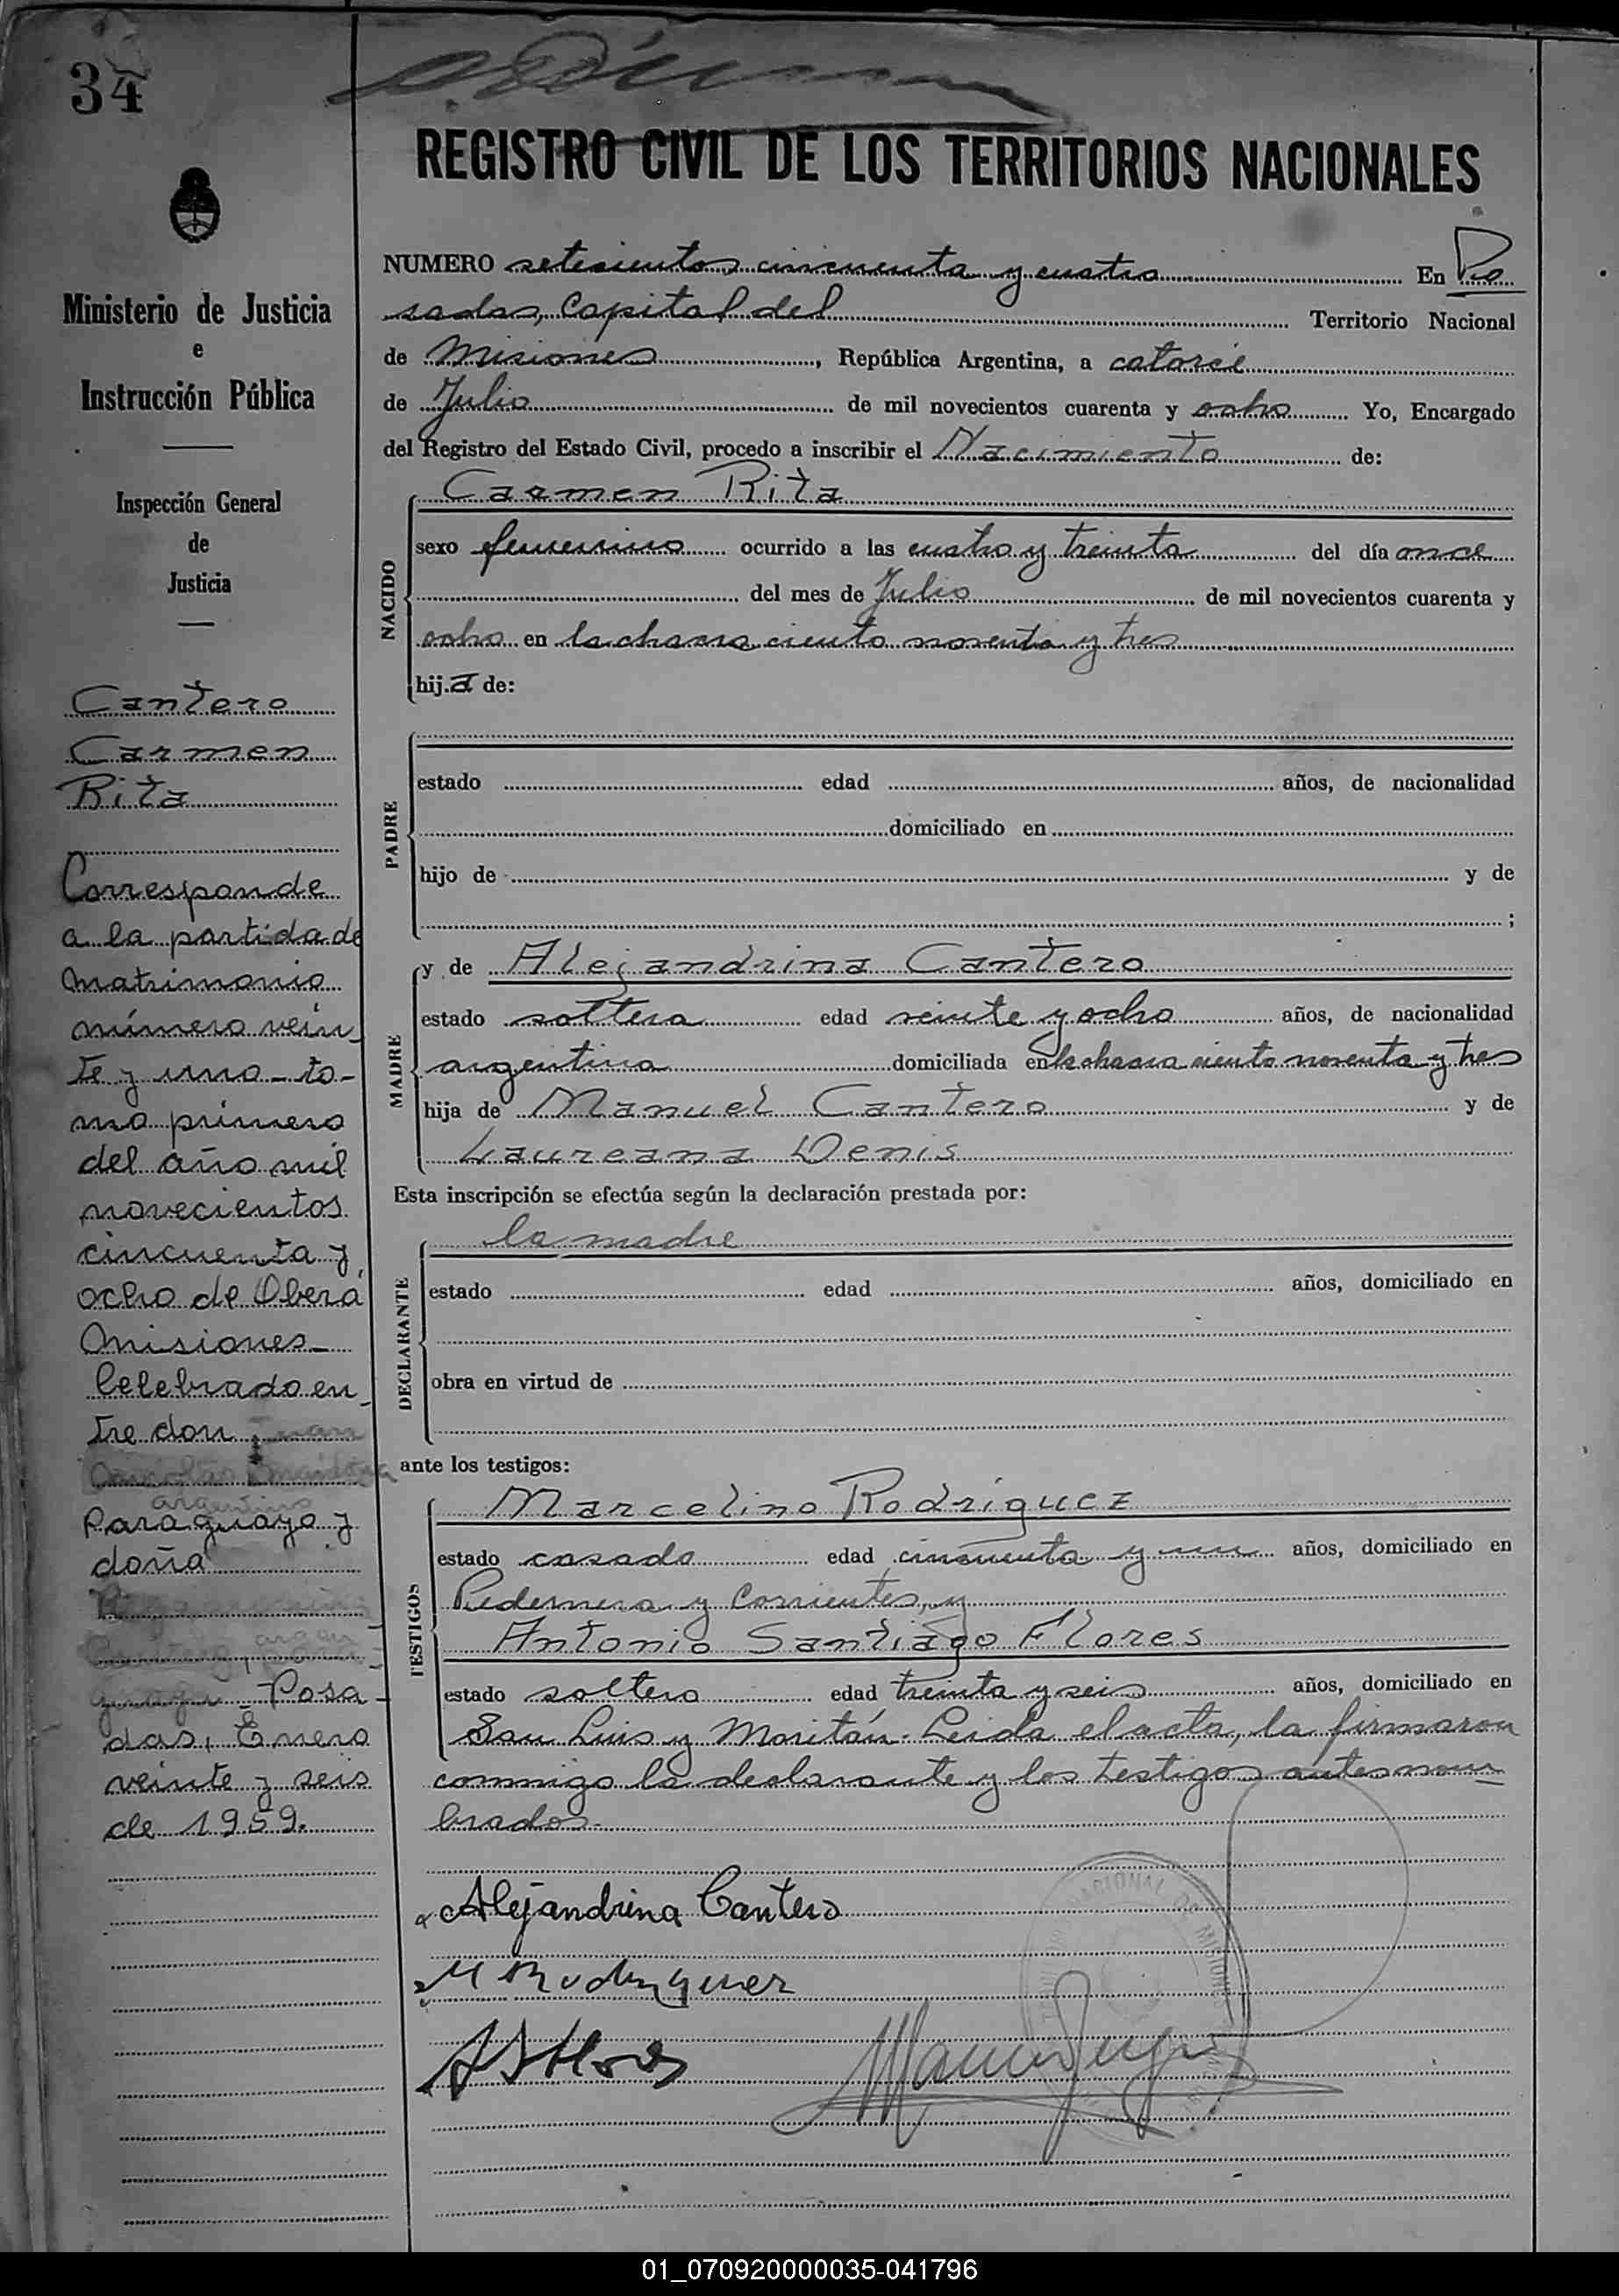 34
REGISTRO CIVIL DE LOS TERRITORIOS NACIONALES
Ministerio de Justicia
e
Instrucción Pública
Inspección General
de
Justicia
Cantero
Carmen
Rita
Corresponde
a la partida de
matrimonio
número vein_
te y uno - to-
mo primero
del año mil
novecientos
cincuenta y
ocho de Oberá
Misiones_
Celebrado en_
tre don
argentino
Paraguayo y
doña
Posa-
das, Enero
veinte y seis
de 1959.
NUMERO setecientos cincuenta y cuatro En Po
sadas, Capital del Territorio Nacional
de Misiones, República Argentina, a catorce
de Julio de mil novecientos cuarenta y ocho Yo, Encargado
del Registro del Estado Civil, procedo a inscribir el Nacimiento de:
NACIDO
Carmen Rita
sexo femenino ocurrido a las cuatro y treinta del día once
del mes de Julio de mil novecientos cuarenta y
ocho en la chacra ciento noventa y tres
hija de:
PADRE
estado edad años, de nacionalidad
domiciliado en
hijo de y de
;
MADRE
y de Alejandrina Cantero
estado soltera edad veinte y ocho años, de nacionalidad
argentina domiciliada en la chacra ciento noventa y tres
hija de Manuel Cantero y de
Laureana Denis
Esta inscripción se efectúa según la declaración prestada por:
DECLARANTE
la madre
estado edad años, domiciliado en
obra en virtud de
ante los testigos:
TESTIGOS
Marcelino Rodriguez
estado casado edad cincuenta y un años, domiciliado en
Pedernera y Corrientes, y
Antonio Santiago Flores
estado soltero edad treinta y seis años, domiciliado en
San Luis y Moritán. Leida el acta, la firmaron
conmigo la declarante y los testigos antes nom_
brados.
Alejandrina Cantero
M Rodriguez
A S Flores
01_070920000035-041796